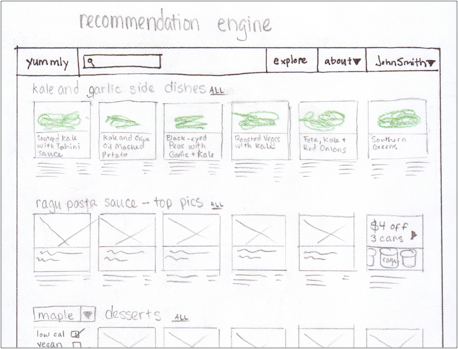 recommendation engine
yummly
explore
about
John Smith
kale and garlic side dishes ALL
Sauteed Kale
with Tahini
Sauce
Kale and Olive
Oil Mashed
Potato
Black-eyed
Peas with
Garlic + Kale
Roasted Pears
with Kale
Feta, Kale +
Red Onions
Southern
Greens
ragu pasta sauce - top pics ALL
$4 off
3 cans
ragu
maple desserts ALL
low cal
vegan